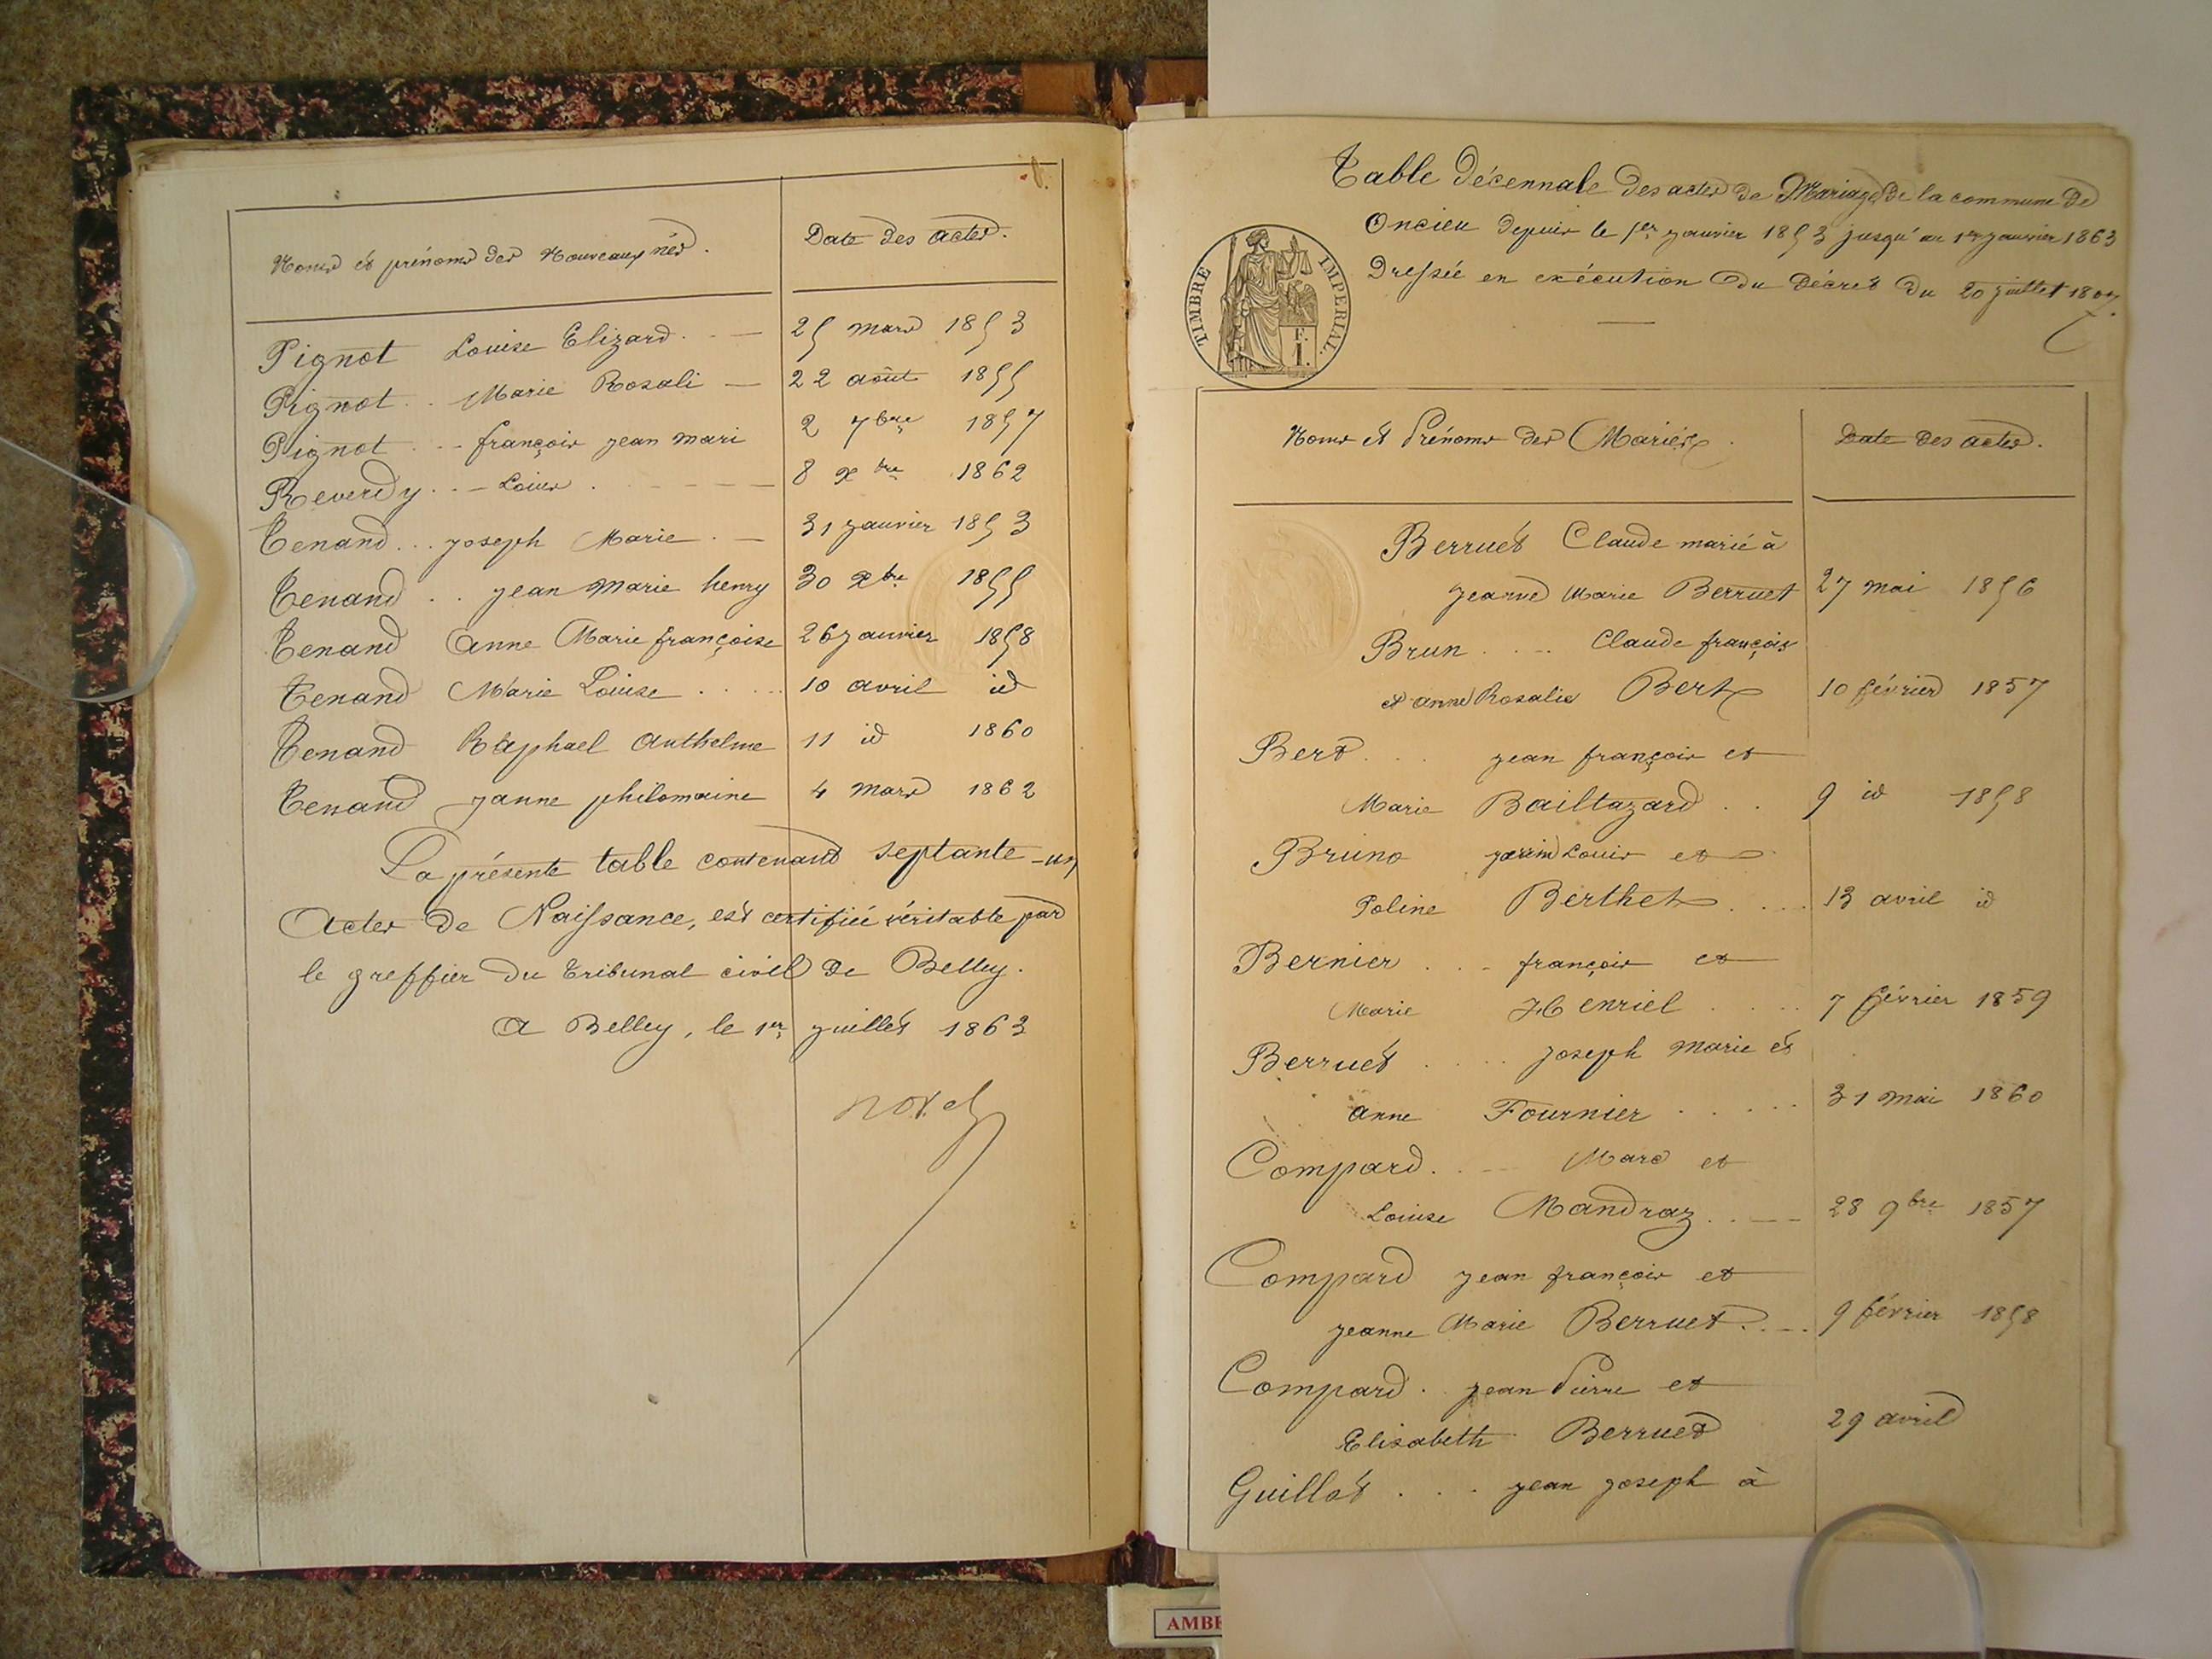 Noms et prénoms des Nouveaux nés. Date des actes.
Pignot Louise Elizard 25 mars 1853
Pignot Marie Rosali 22 août 1855
Pignot françois jean mari 2 7bre 1857
Reverdy Louis 8 xbre 1862
Tenand joseph Marie 31 janvier 1853
Tenand jean Marie henry 30 xbre 1855
Tenand Anne Marie françoise 26 janvier 1858
Tenand Marie Louise 10 avril id
Tenand Raphael Anthelme 11 id 1860
Tenand janne philomaine 4 mars 1862
La présente table contenant septante-un
Actes de Naissance, est certifiée véritable par
le greffier du Tribunal civil de Belley.
A Belley, le 1er juillet 1863
Table décennale des actes de Mariage de la commune de
Oncieu depuis le 1er janvier 1853 jusqu'au 1er janvier 1863
Dressée en exécution du Décret du 20 juillet 1807.
TIMBRE IMPERIAL.
E.
1.
Noms et Prénoms des Mariés. Date des actes.
Berruet Claude marié à
jeanne Marie Berruet 27 mai 1856
Brun Claude françois
et anne Rosalie Bert 10 février 1857
Bert jean françois et
Marie Bailtazard 9 id 1858
Bruno Louis et
Poline Berthet 13 avril id
Bernier françois et
Marie Henriel 7 février 1859
Berruet joseph Marie et
anne Fournier 31 mai 1860
Compard Marc et
Louise Mandraz 28 9bre 1857
Compard jean françois et
jeanne Marie Berruet 9 février 1858
Compard jean Pierre et
Elisabeth Berruet 29 avril
Guillot jean joseph à
AMBE